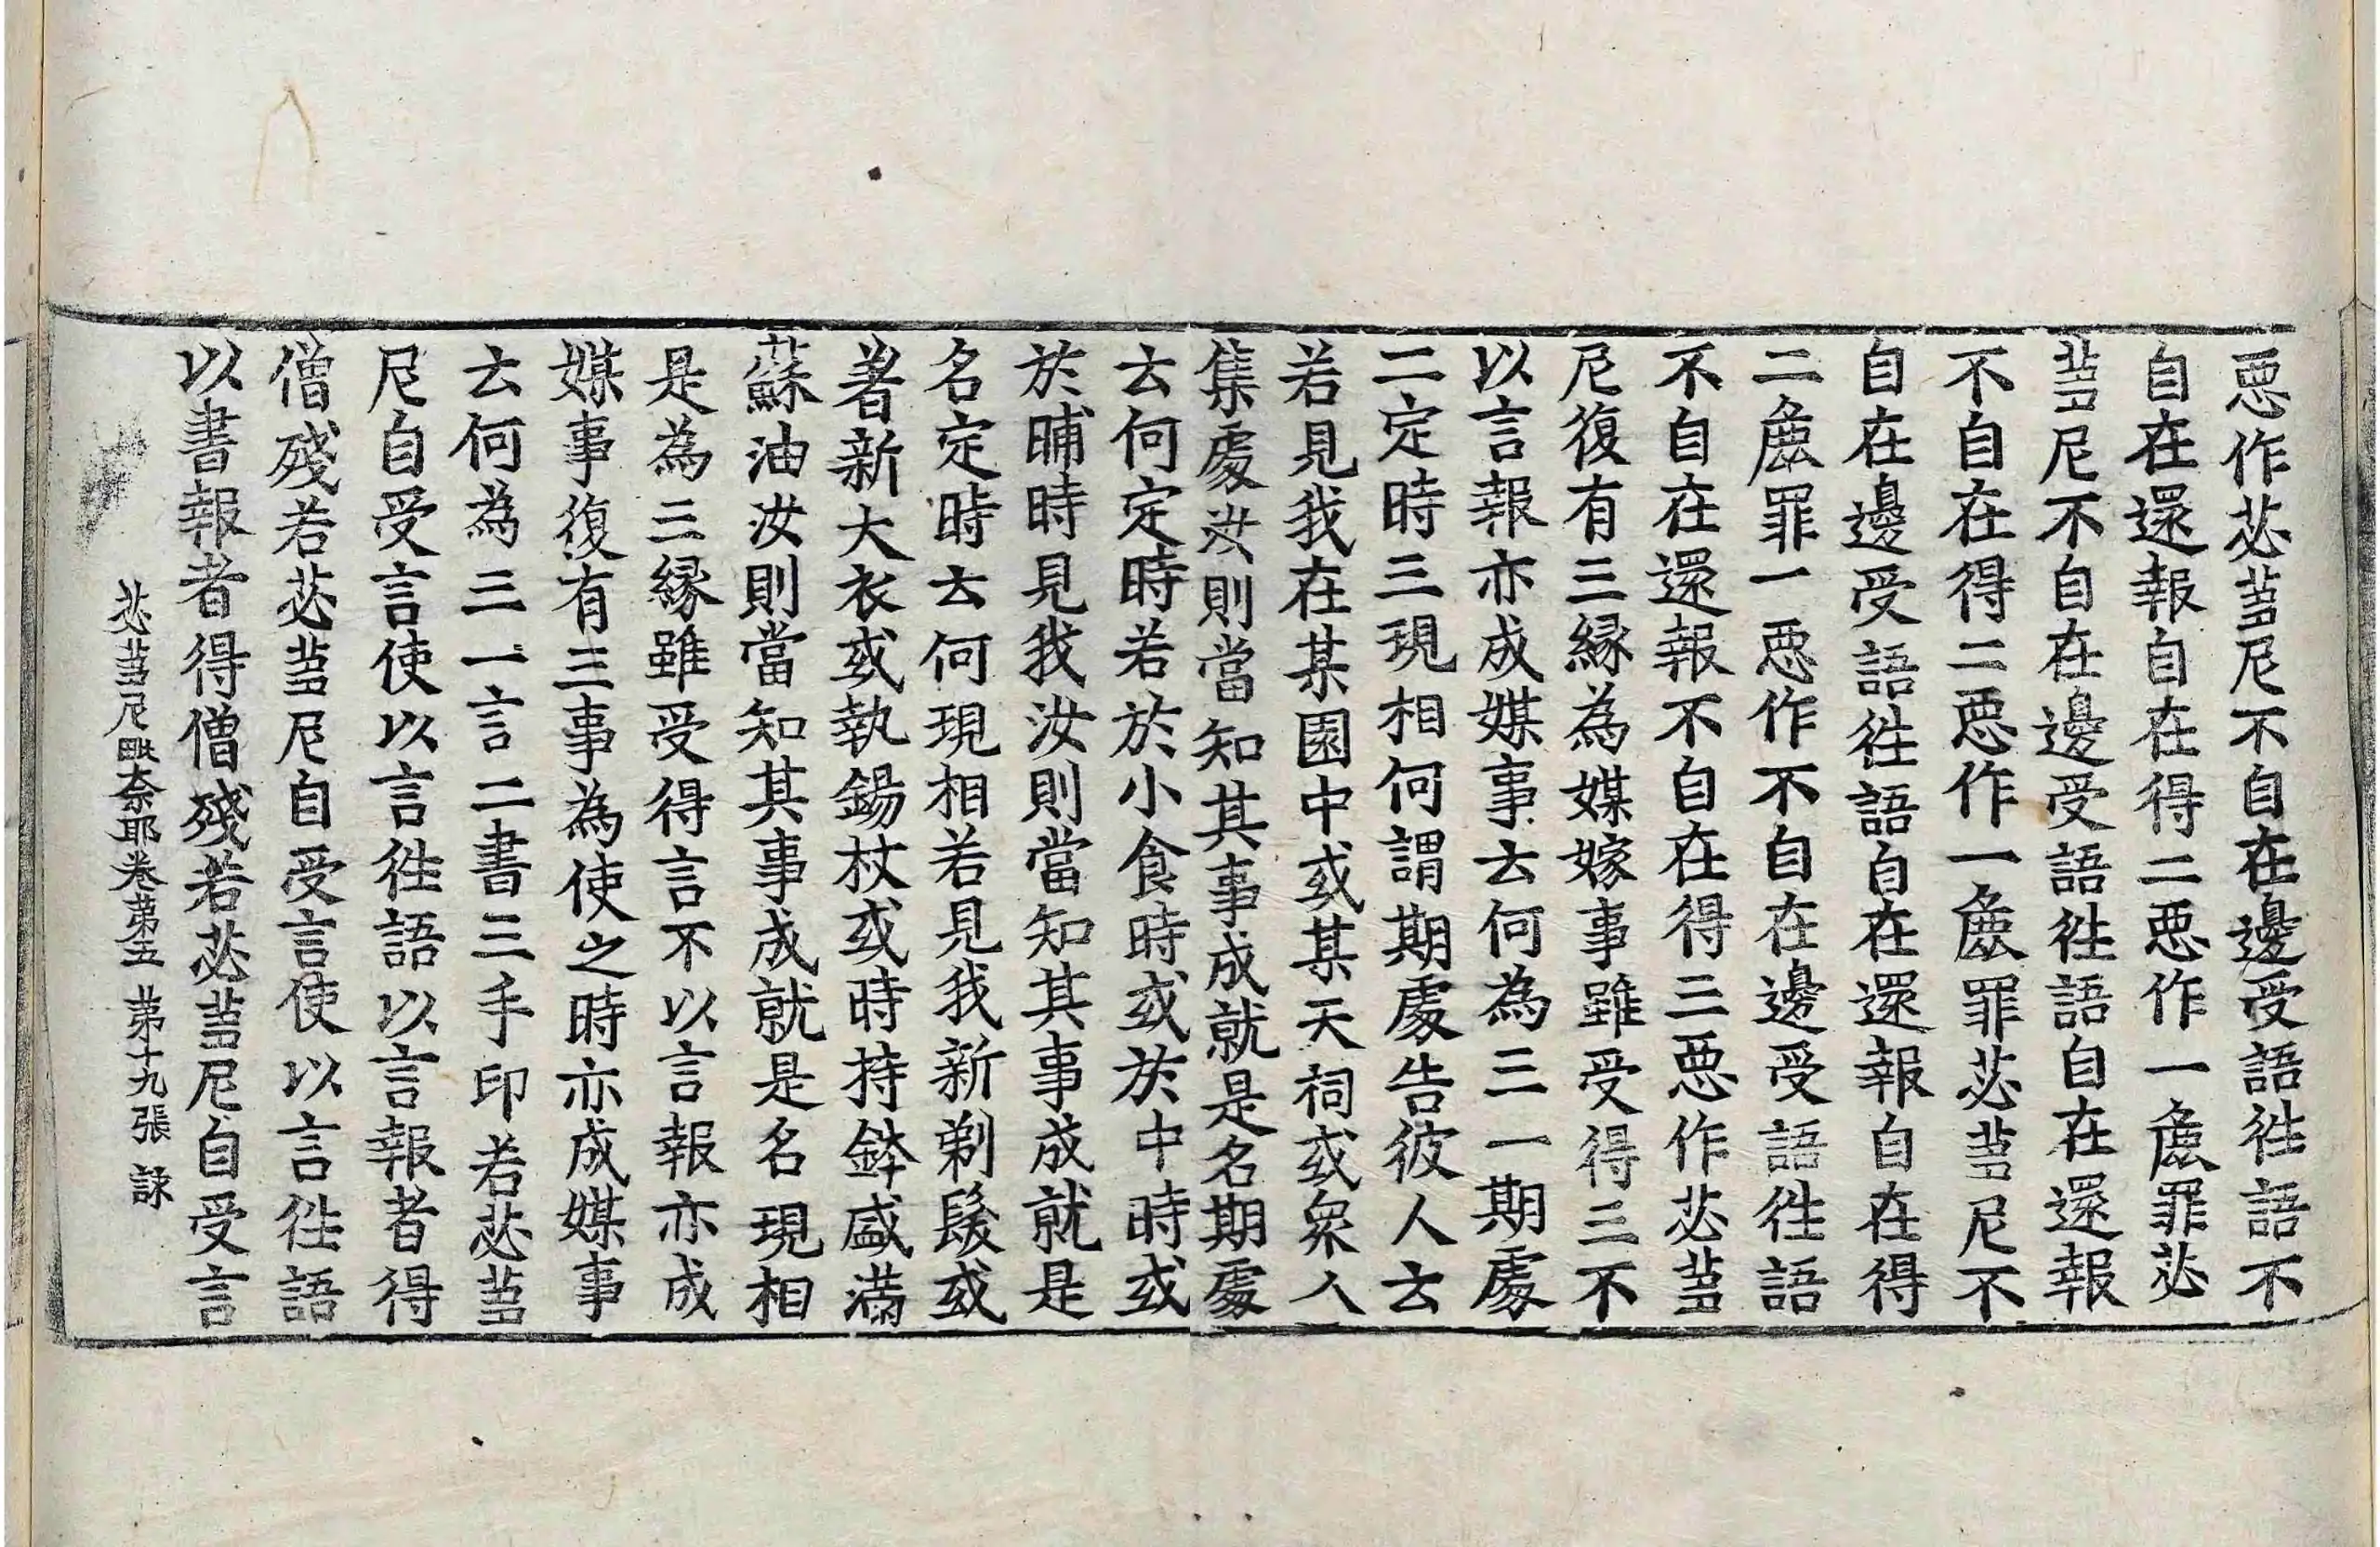 惡作苾蒭尼不自在邊受語徃語不
自在還報自在得二惡作一麁罪苾
蒭尼不自在邊受語徃語自在還報
不自在得二惡作一麁罪苾蒭尼不
自在邊受語徃語自在還報自在得
二麁罪一惡作不自在邊受語徃語
不自在還報不自在得三惡作苾蒭
尼復有三緣為媒嫁事雖受得三不
以言報亦成媒事云何為三一期處
二定時三現相何謂期處告彼人云
若見我在某園中或某天祠或衆人
集處汝則當知其事成就是名期處
云何定時若於小食時或於中時或
於晡時見我汝則當知其事成就是
名定時云何現相若見我新剃髮或
著新大衣或執錫杖或時持鉢盛滿
蘇油汝則當知其事成就是名現相
是為三緣雖受得言不以言報亦成
媒事復有三事為使之時亦成媒事
云何為三一言二書三手印若苾蒭
尼自受言使以言徃語以言報者得
僧殘若苾蒭尼自受言使以言徃語
以書報者得僧殘若苾蒭尼自受言
苾蒭尼毗奈耶卷第五 第十九張 諫